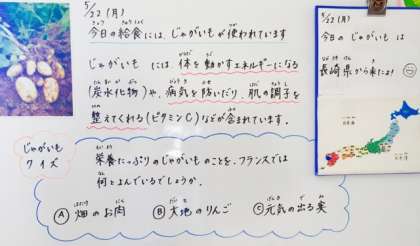 5/22(月)
今日の給食には、じゃがいもが使われています
じゃがいもには、体を動かすエネルギーになる
(炭水化物)や、病気を防いだり、肌の調子を
整えてくれる(ビタミンC)などが含まれています。
じゃがいも
クイズ
栄養たっぷりのじゃがいものことを、フランスでは
何とよんでいるでしょうか。
Ⓐ 畑のお肉 Ⓑ 大地のりんご Ⓒ 元気の出る実
5/22(月)
今日のじゃがいもは
長崎県から来たよ